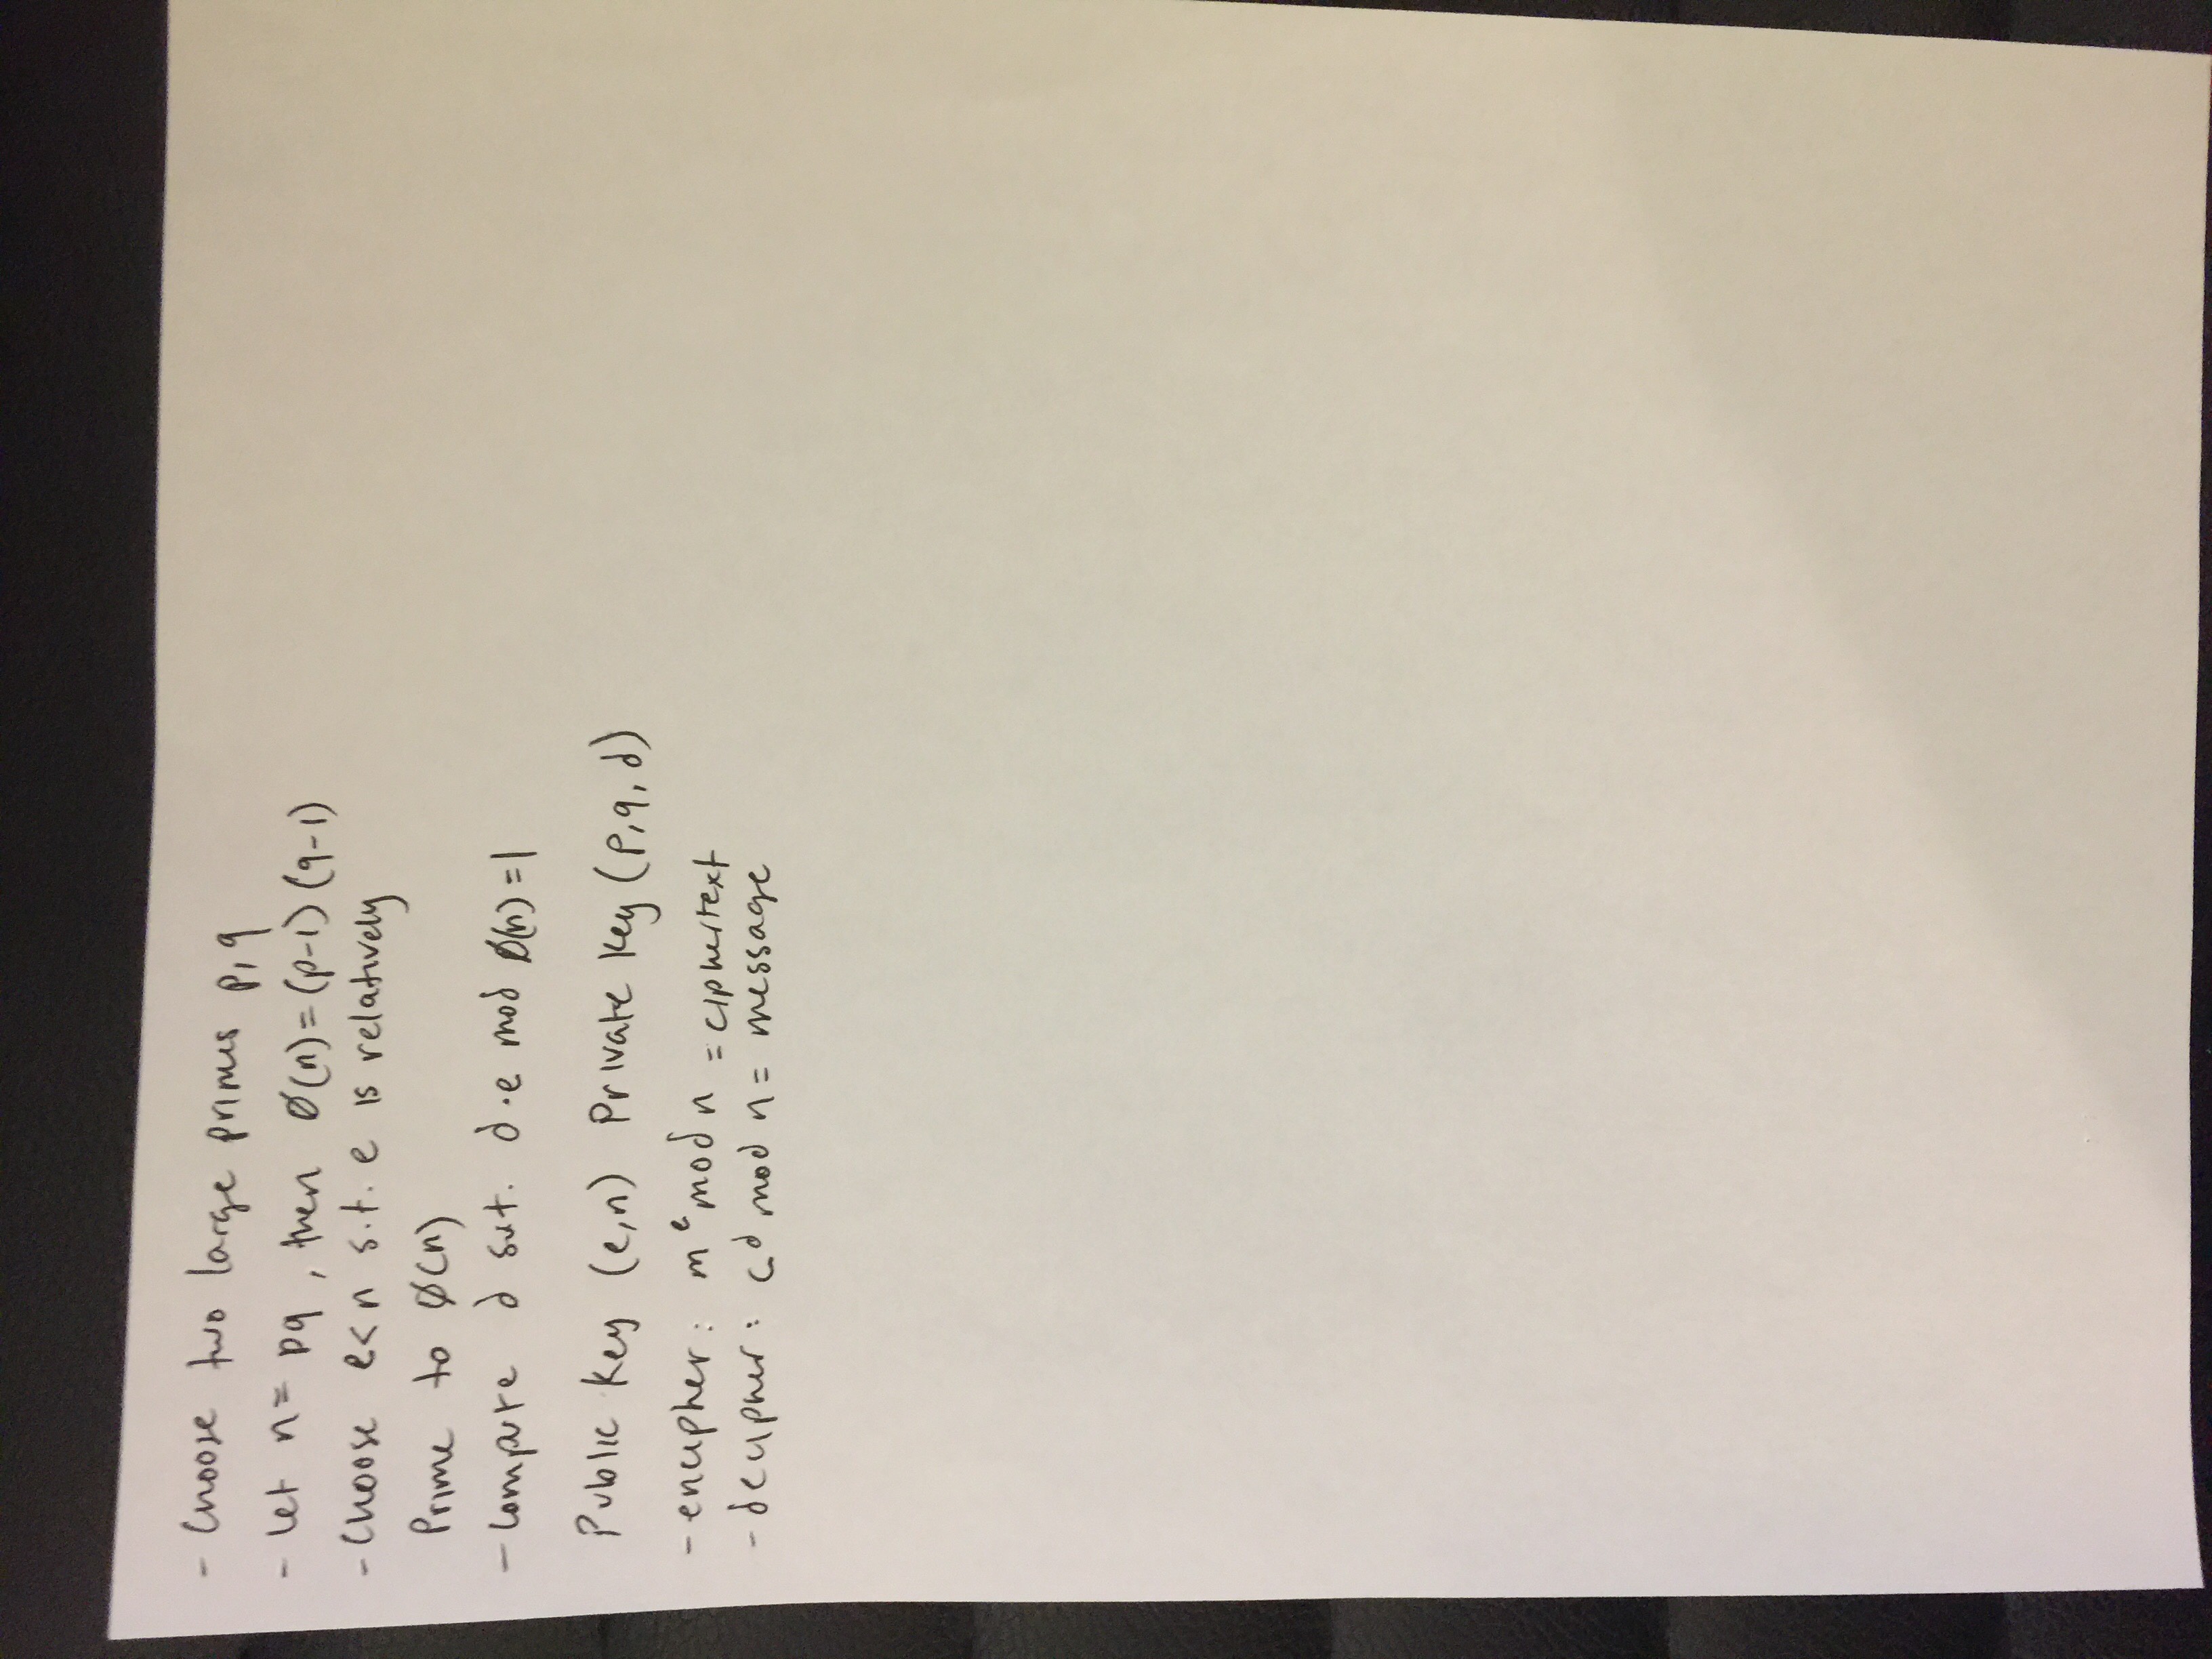 - Choose two large primes p, q
- Let n = pq, then ø(n) = (p-1) (q-1)
- Choose e < n s.t. e is relatively
Prime to ø(n)
- Compute d s.t. d · e mod ø(n) = 1
Public Key (e,n) Private Key (p, q, d)
- encipher: m^e mod n = ciphertext
- decipher: c^d mod n = message